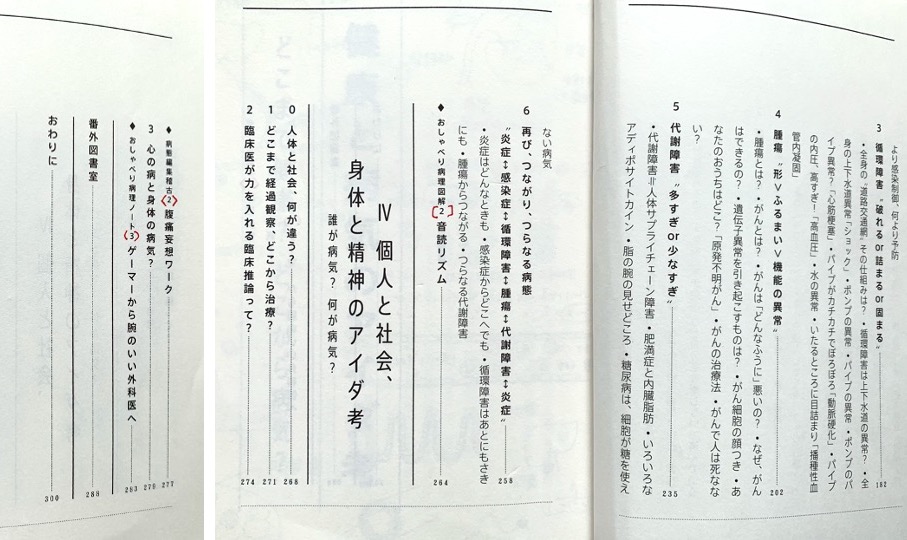 より感染制御、何より予防
3 循環障害 “破れる or 詰まる or 固まる” 182
・全身の“道路交通網”その仕組みは？・循環障害は上下水道の異常？・全
身の上下水道異常「ショック」・ポンプの異常・パイプの異常・ポンプのパ
イプ異常？「心筋梗塞」・パイプがカチカチでぼろぼろ「動脈硬化」・パイプ
の内圧、高すぎ！「高血圧」・水の異常・いたるところに目詰まり「播種性血
管内凝固」
4 腫瘍 “形∨ふるまい∨機能の異常” 202
・腫瘍とは？・がんとは？・がんは「どんなふうに」悪いの？・なぜ、がん
はできるの？・遺伝子異常を引き起こすものは？・がん細胞の顔つき・あ
なたのおうちはどこ？「原発不明がん」・がんの治療法・がんで人は死なな
い？
5 代謝障害 “多すぎor少なすぎ” 235
・代謝障害＝人体サプライチェーン障害・肥満症と内臓脂肪・いろいろな
アディポサイトカイン・脂の腕の見せどころ・糖尿病は、細胞が糖を使え
ない病気
6 再び、つながり、つらなる病態
“炎症↕感染症↕循環障害↕腫瘍↕代謝障害↕炎症” 258
・炎症はどんなときも・感染症からどこへでも・循環障害はあとにもさき
にも・腫瘍からつながる・つらなる代謝障害
◆おしゃべり病理図解【2】音読リズム 264
Ⅳ 個人と社会、
身体と精神のアイダ考
誰が病気？ 何が病気？
0 人体と社会、何が違う？ 268
1 どこまで経過観察、どこから治療？ 271
2 臨床医が力を入れる臨床推論って？ 274
◆病態編集稽古〈2〉腹痛妄想ワーク 277
3 心の病と身体の病気？ 279
◆おしゃべり病理ノート〈3〉ゲーマーから腕のいい外科医へ 283
番外図書室 288
おわりに 300